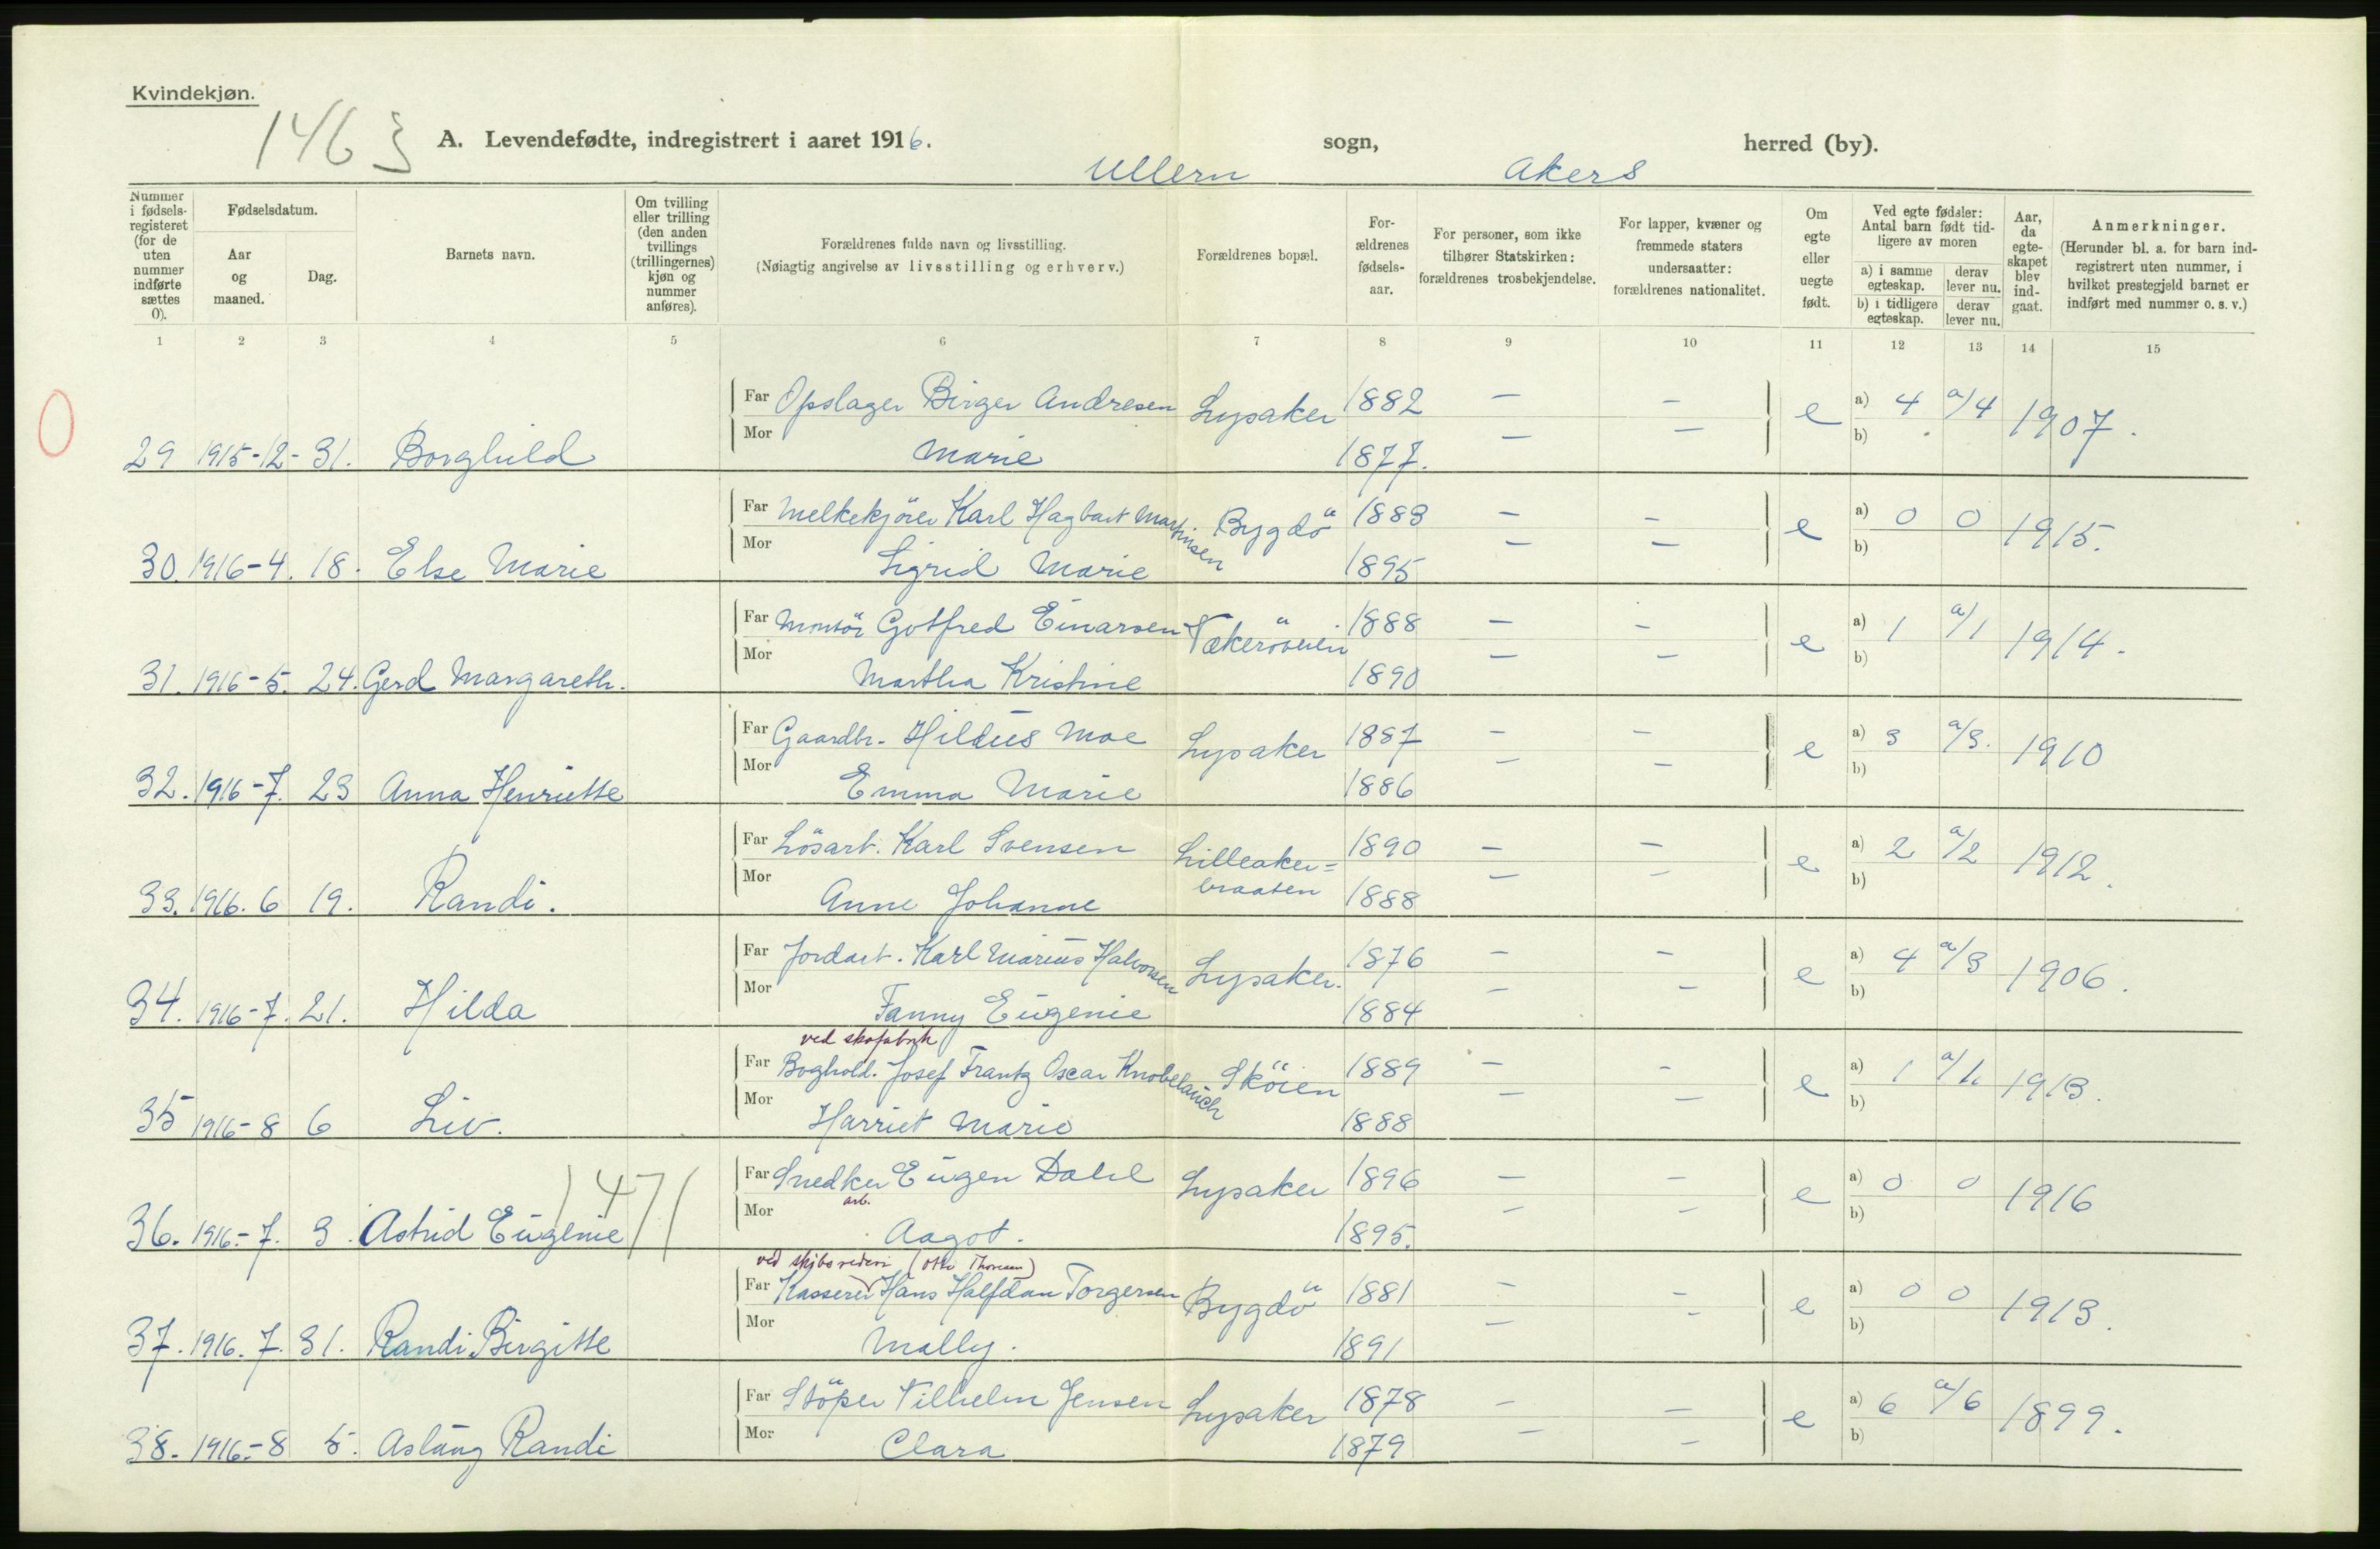 Kvindekjøn.
1463
A. Levendefødte, indregistrert i aaret 1916. Ullern sogn, Akers herred (by).
Nummer i fødselsregisteret (for de uten nummer indførte sættes 0).
Fødselsdatum.
Aar og maaned.
Dag.
Barnets navn.
Om tvilling eller trilling (den anden tvillings (trillingernes) kjøn og nummer anføres).
Forældrenes fulde navn og livsstilling.
(Nøiagtig angivelse av livsstilling og erhverv.)
Forældrenes bopæl.
Forældrenes fødselsaar.
For personer, som ikke tilhører Statskirken: forældrenes trosbekjendelse.
For lapper, kvæner og fremmede staters undersaatter: forældrenes nationalitet.
Om egte eller uegte født.
Ved egte fødsler: Antal barn født tidligere av moren
a) i samme egteskap. derav lever nu.
b) i tidligere egteskap. derav lever nu.
Aar, da egteskapet blev indgaat.
Anmerkninger.
(Herunder bl. a. for barn indregistrert uten nummer, i hvilket prestegjeld barnet er indført med nummer o. s. v.)
1 2 3 4 5 6 7 8 9 10 11 12 13 14 15
0
Far Opslager Birger Andresen Lysaker 1882 — — e a) 4 a/4 1907.
29 1915-12- 31. Borghild Mor Marie 1877. — — b)
Far Melkekjörer Karl Hagbart Martinsen Bygdö 1883 — — e a) 0 0 1915.
30. 1916-4. 18. Else Marie Mor Sigrid Marie 1895 — — b)
Far Montör Gotfred Einarsen Vækeröveien 1888 — — e a) 1 a/1 1914.
31. 1916-5. 24. Gerd Margareth. Mor Martha Kristine 1890 — — b)
Far Gaardbr. Hildus Moe Lysaker 1887 — — e a) 3 a/3. 1910
32. 1916-7. 23 Anna Henriette Mor Emma Marie 1886 — — b)
Far Lösarb. Karl Svensen Lilleaker=braaten 1890 — — e a) 2 a/2 1912.
33. 1916. 6 19. Randi. Mor Anne Johanne 1888 — — b)
Far Jordarb. Karl Marius Halvorsen Lysaker. 1876 — — e a) 4 a/3 1906.
34. 1916-7. 21. Hilda Mor Fanny Eugenie 1884 — — b)
ved skofabrik
Far Boghold. Josef Frantz Oscar Knobelauch Sköien 1889 — — e a) 1 a/1. 1913.
35 1916-8 6 Liv. Mor Harriet Marie 1888 — — b)
1471
Far Snedker Eugen Dahl Lysaker 1896 — — e a) 0 0 1916
arb.
36. 1916.-7. 3. Astrid Eugenie Mor Aagot. 1895. — — b)
ved skibsrederi (Otto Thoresen)
Far Kasserer Hans Halfdan Torgersen Bygdö 1881 — — e a) 0 0 1913.
37. 1916. 7. 31. Randi Birgitte Mor Mally. 1891 — — b)
Far Stöper Vilhelm Jensen Lysaker 1878 — — e a) 6 a/6 1899.
38. 1916.-8 5. Aslaug Randi Mor Clara 1879 — — b)